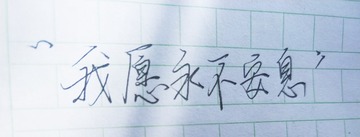 “我愿永不安息”